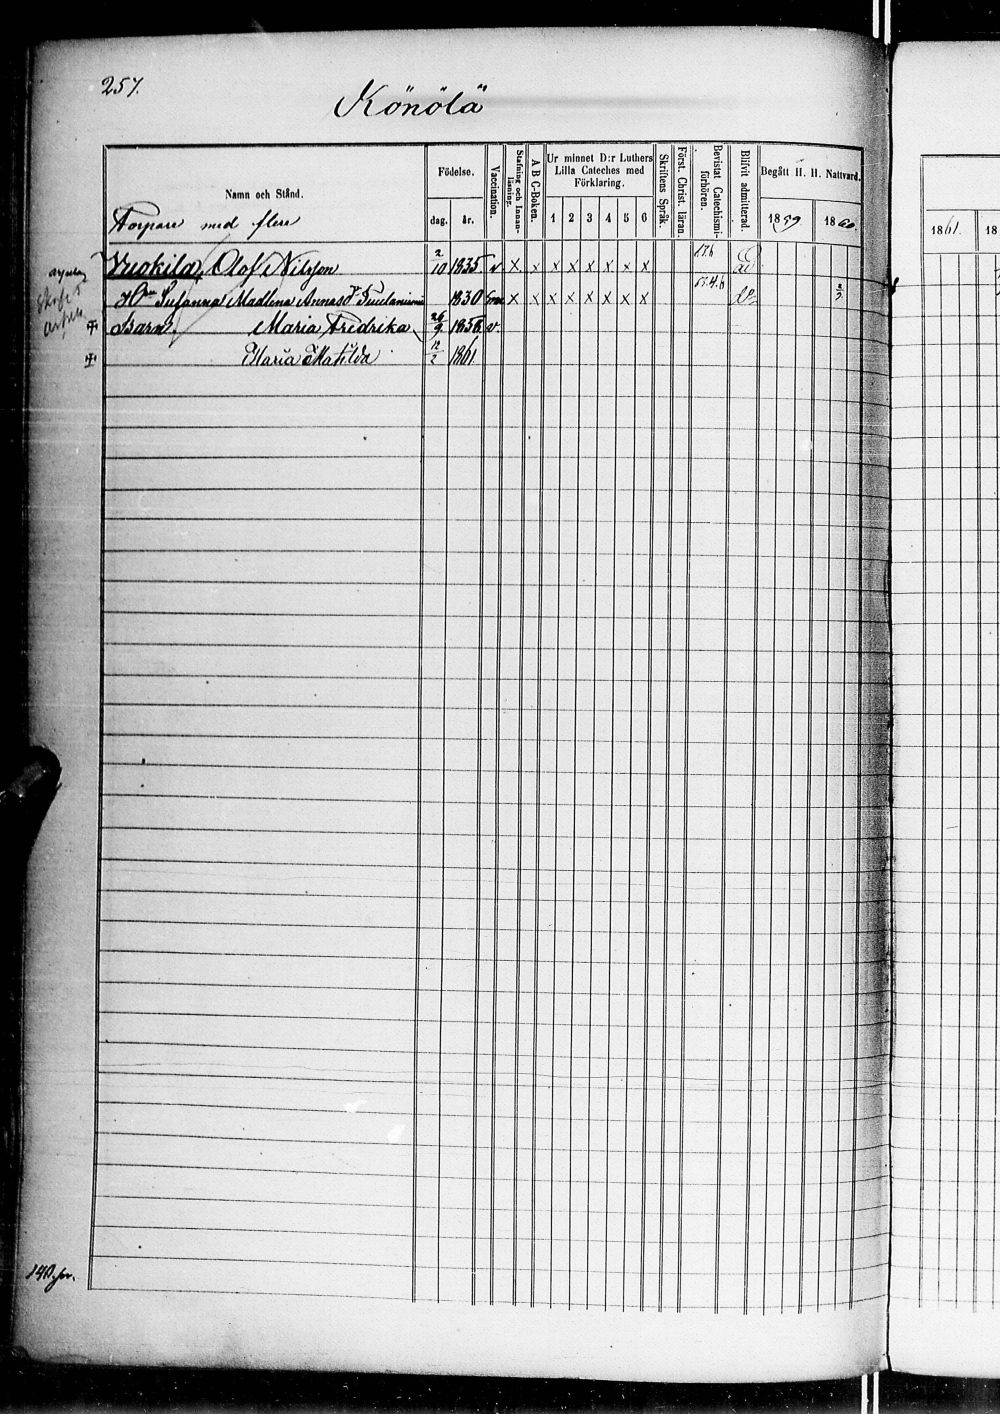 257.
Könölä
Namn och Stånd.
Torpare med flere
Födelse.
dag. år.
Vaccination.
Stafning och Innan-läsning.
A B C-Boken.
Ur minnet D:r Luthers Lilla Cateches med Förklaring.
1 2 3 4 5 6
Skriftens Språk.
Först. Christ. läran.
Bevistat Catechismi-förhören.
Blifvit admitterad.
Begått H. H. Nattvard.
1859 1860.
1861. 18
Vuokila, Olof Nilsson 2/10 1835 v x x x x x x x x
Hu Susanna Madlena Annasd:r 1830 x x x x x x x x
Barn. Maria Fredrika 26/9 1856. v
Maria Matilda 12/2 1861.